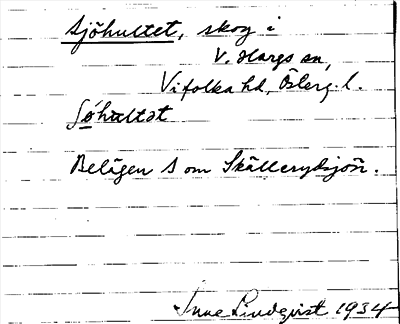 Sjöhultet, skog i
V. Hargs sn,
Vifolka hd, Österg. l.
Belägen S om Skälleryd sjön.
Sune Lindqvist 1934